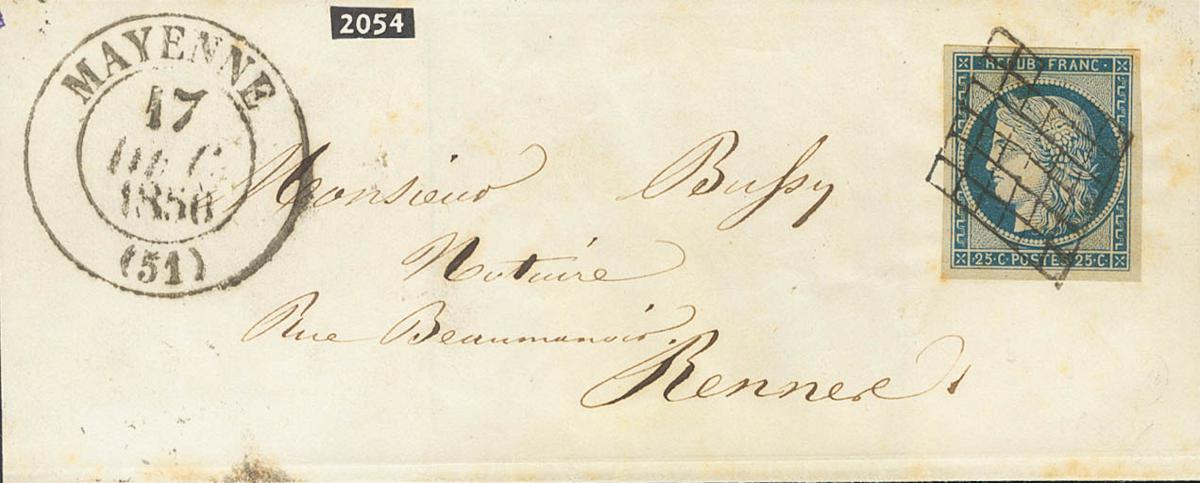 2054
MAYENNE
17
DEC.
1850
(51)
REPUB. FRANC.
25·C·POSTES 25·C·
Monsieur Bussy
Notaire
Rue Beaumanoir.
Rennes